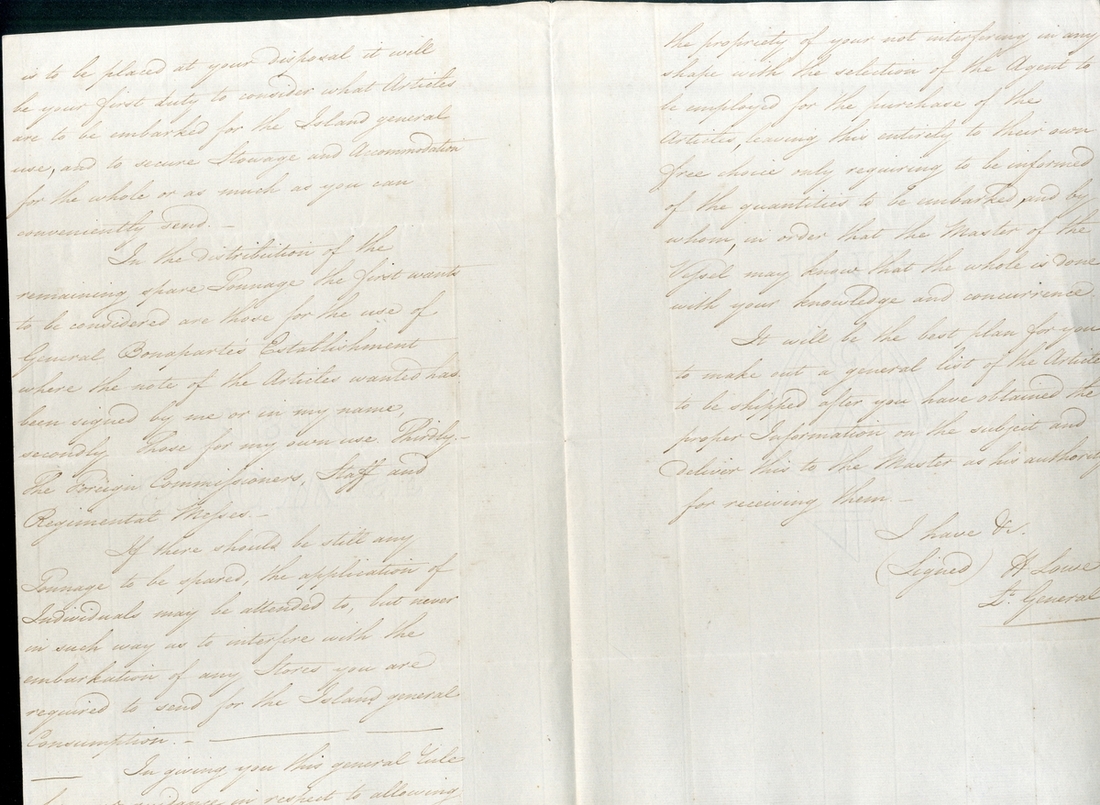 is to be placed at your disposal it will
be your first duty to consider what Articles
are to be embarked for the Island general
use, and to secure Stowage and Accommodation
for the whole or as much as you can
conveniently send. —
In the distribution of the
remaining spare Tonnage the first wants
to be considered are those for the use of
General Bonaparte's Establishment
where the note of the Articles wanted has
been signed by me or in my name,
secondly those for my own use. Thirdly. —
The Foreign Commissioners, Staff and
Regimental Messes. —
If there should be still any
Tonnage to be spared, the application of
Individuals may be attended to, but never
in such way as to interfere with the
embarkation of any Stores you are
required to send for the Island general
Consumption. —
In giving you this general rule
guidance in respect to allowing
the propriety of your not interfering in any
shape with the selection of the Agent to
be employed for the purchase of the
Articles, leaving this entirely to their own
free choice only requiring to be informed
of the quantities to be embarked, and by
whom, in order that the Master of the
Vessel may know that the whole is done
with your knowledge and concurrence.
It will be the best plan for you
to make out a general list of the Articles
to be shipped after you have obtained the
proper Information on the subject and
deliver this to the Master as his authority
for receiving them. —
I have &c.
(Signed) H. Lowe
Lt. General